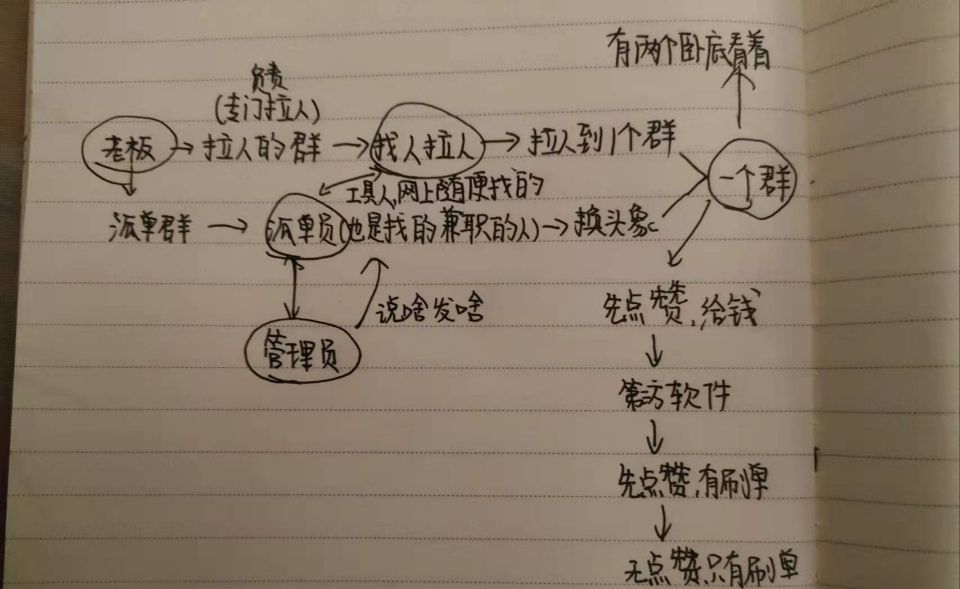 有两个卧底看着
负责
(专门拉人)
老板→拉人的群→找人拉人→拉人到1个群
一个群
工具人,网上随便找的
派单群→派单员(也是找的兼职的人)→换头像
说啥发啥
管理员
先点赞,给钱
第三方软件
先点赞,有刷单
无点赞只有刷单